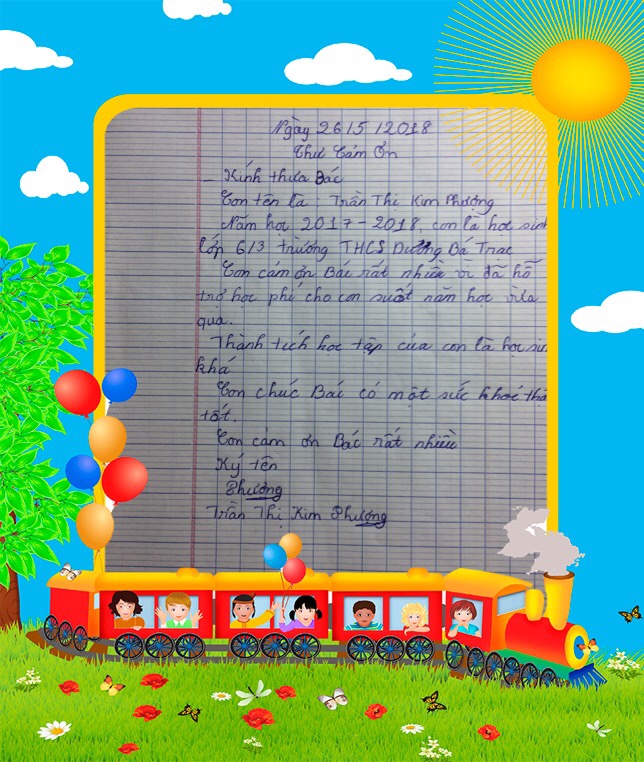 Ngày 26/5/2018
Thư Cảm Ơn
_ Kính thưa Bác
Con tên là : Trần Thị Kim Phượng
Năm học 2017 - 2018, con là học sinh
lớp 6/3 trường THCS Dương Bá Trạc
Con cảm ơn Bác rất nhiều vì đã hỗ
trợ học phí cho con suốt năm học vừa
qua.
Thành tích học tập của con là học sin
khá
Con chúc Bác có một sức khoẻ thậ
tốt.
Con cảm ơn Bác rất nhiều
Ký tên
Phượng
Trần Thị Kim Phượng